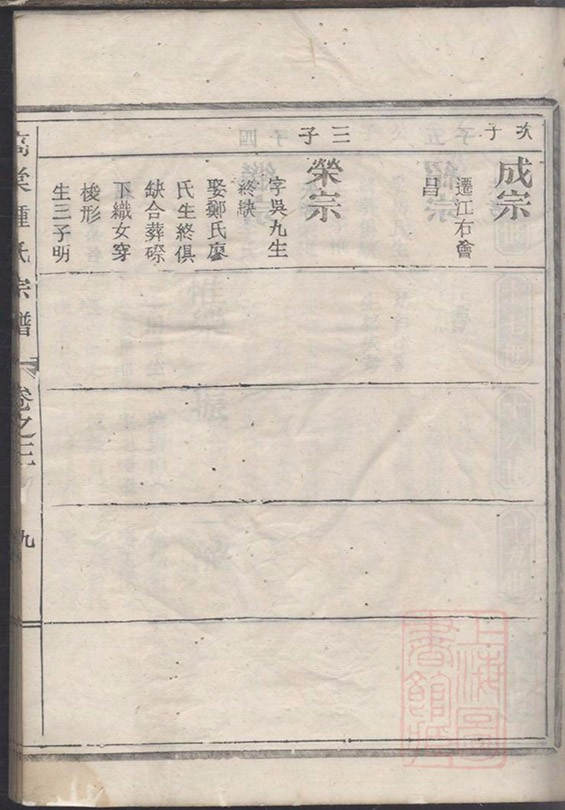 次子
成宗
遷江右會
昌
三子
榮宗
字吳九生
終缺
娶鄭氏廖
氏生終俱
缺合葬磜
下織女穿
梭形
生三子明
鍾氏宗譜
卷之三
九
上海圖書館藏